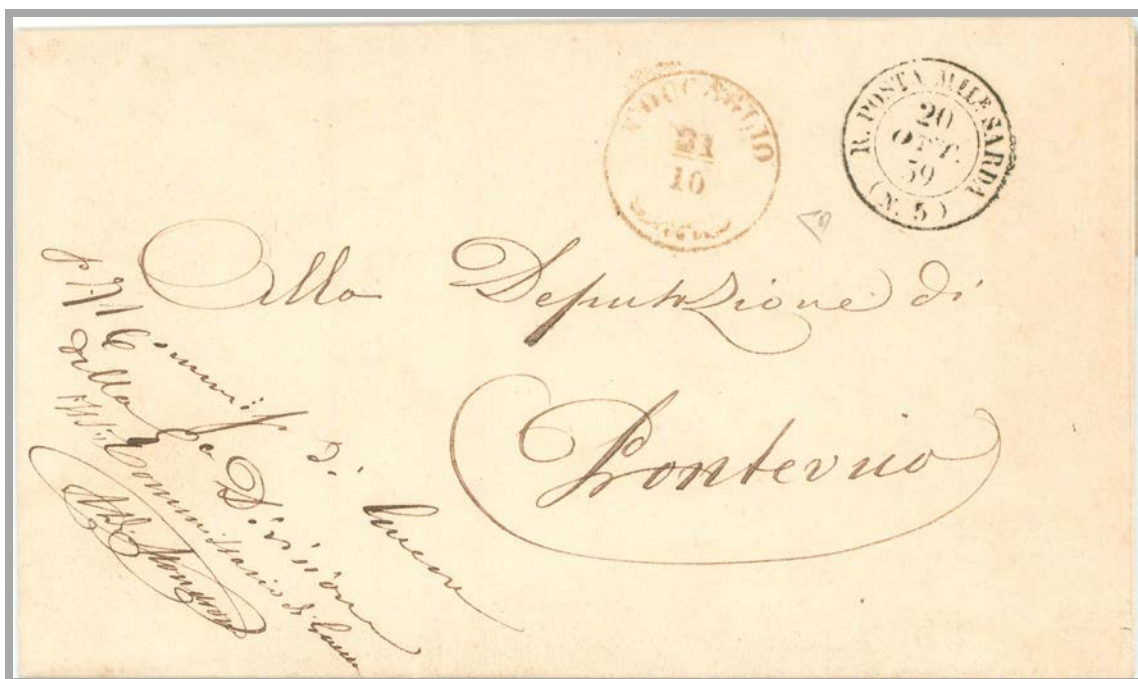 R. POSTA MILE SARDA
20
OTT.
59
(N. 5)
21
10
Alla Deputazione di
Pontevico
Il Commiss di Guerra
della Divisione
Commissario di Guerra